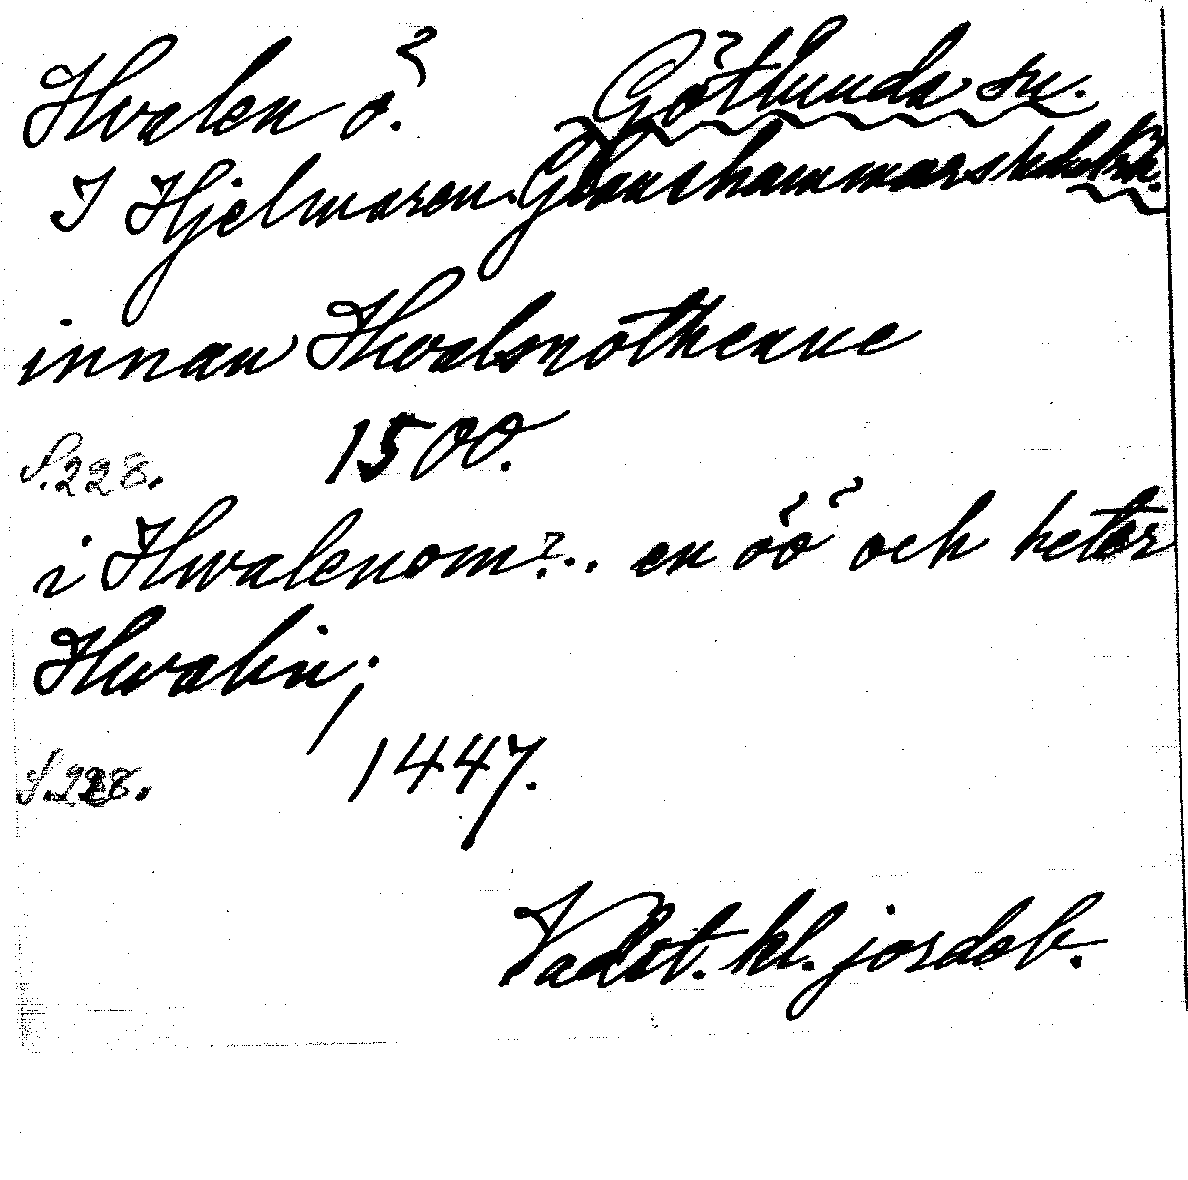 Hvalen ö. Götlunda sn.
I Hjelmaren. Glanshammars hd
innan Hwalsnötherne
S. 228. 1500.
i Hwalenom?.. en öö och heter
Hwalin;
S. 228. 1447.
Vadst. kl. jordeb.